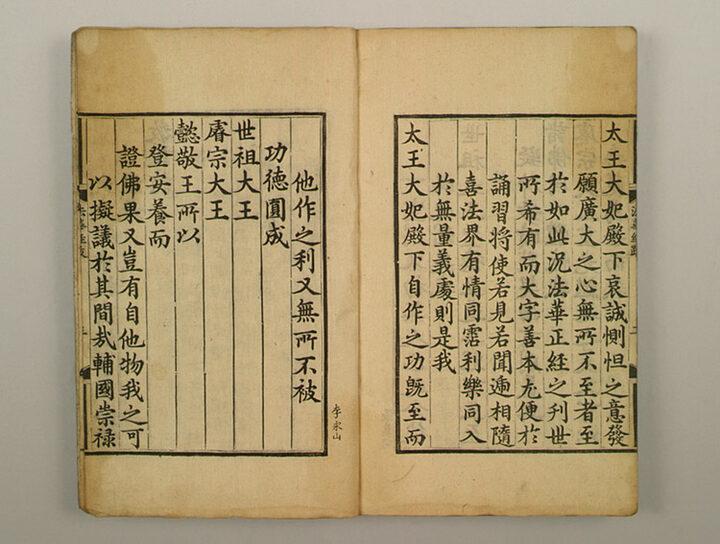 太王大妃殿下哀誠惻怛之意發
願廣大之心無所不至者至
於如此況法華正經之刊世
所希有而大字善本尤便於
誦習將使若見若聞遞相隨
喜法界有情同霑利樂同入
於無量義處則是我
太王大妃殿下自作之功旣至而
他作之利又無所不被
功德圓成
世祖大王
睿宗大王
懿敬王所以
登安養而
證佛果又豈有自他物我之可
以擬議於其間㢤輔國崇祿
李永山